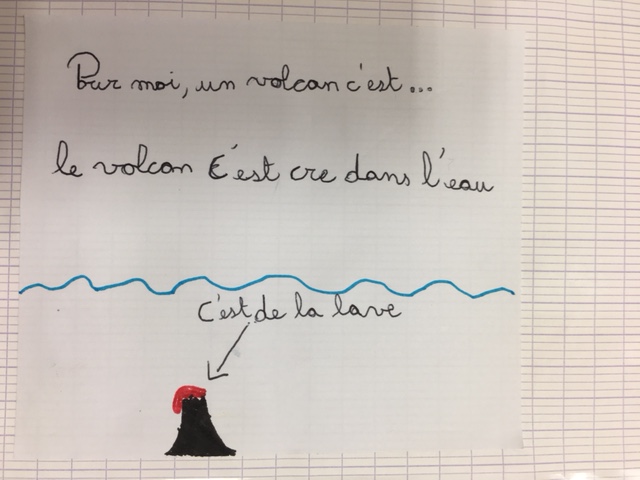 Pour moi, un volcan c'est...
le volcan c'est cre dans l'eau
c'est de la lave